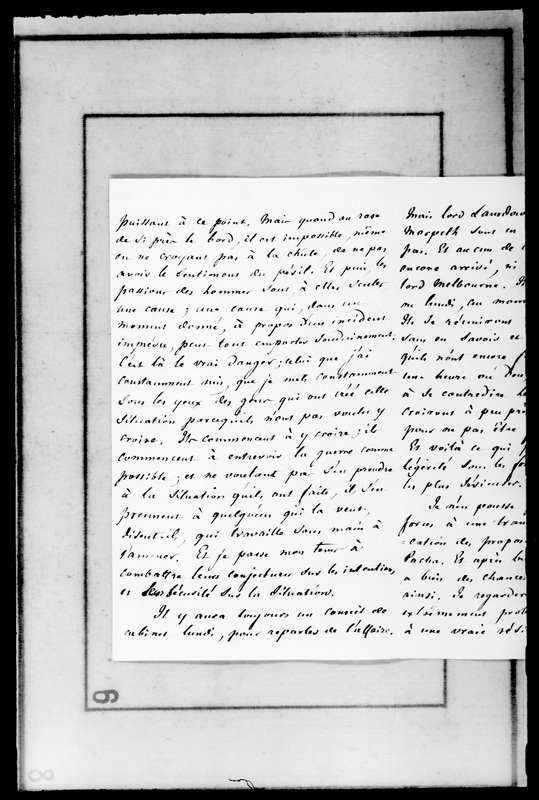 puissant à ce point. Mais quand on rase
de si près le bord, il est impossible, même
en ne croyant pas à la chute, de ne pas
avoir le sentiment du péril. Et puis, les
passions des hommes sont, à elles seules
une cause ; une cause qui, dans un
moment donné, à propos d'un incident
imprévu, peut tout emporter soudainement.
C'est là le vrai danger ; celui que j'ai
constamment mis, que je mets constamment
sous les yeux des gens qui ont créé cette
situation parcequ'ils n'ont pas voulu y
croire. Ils commencent à y croire ; ils
commencent à entrevoir la guerre comme
possible ; et ne voulant pas s'en prendre
à la situation qu'ils ont faite, ils s'en
prennent à quelqu'un qui la veut,
disent-ils, qui travaille sous main à
l'amener. Et je passe mon tems à
combattre leurs conjectures sur les intentions,
et sécurité sur la situation.
Il y aura toujours un conseil de
cabinet lundi, pour reparler de l'affaire.
Mais lord Lansdow
Morpeth sont en
pas. Et aucun de
encore arrivé, ni
lord Melbourne. Il
ou lundi, au mom
Ils se réuniront
sans en savoir et
qu'ils n'ont encore
une heure ou deux
à se contredire
croiront à peu près
pour ou pas être
Et voilà ce qui
légèreté sous les
les plus sérieuses.
Je m'en pousse
forces à une tran
=cation des propos
Pacha. Et après
a bien des chances
ainsi. Je regarder
extrêmement prob
à une vraie rési
6
8